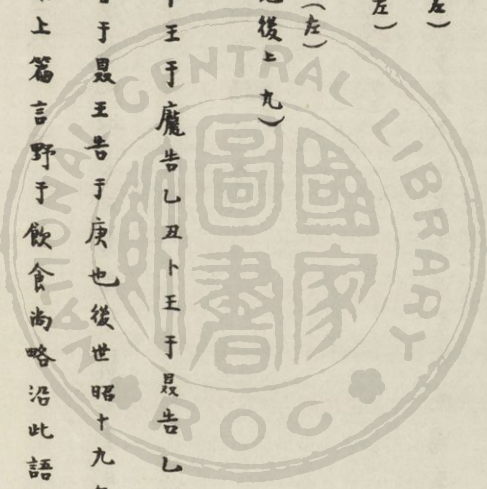 左）
左）
（左）
後上九）
王于告乙丑卜王于告乙
于王告于庚也後世昭十九
上篇言野于飲食尚略沿此語
NATIONAL CENTRAL LIBRARY
國家圖書館
ROC